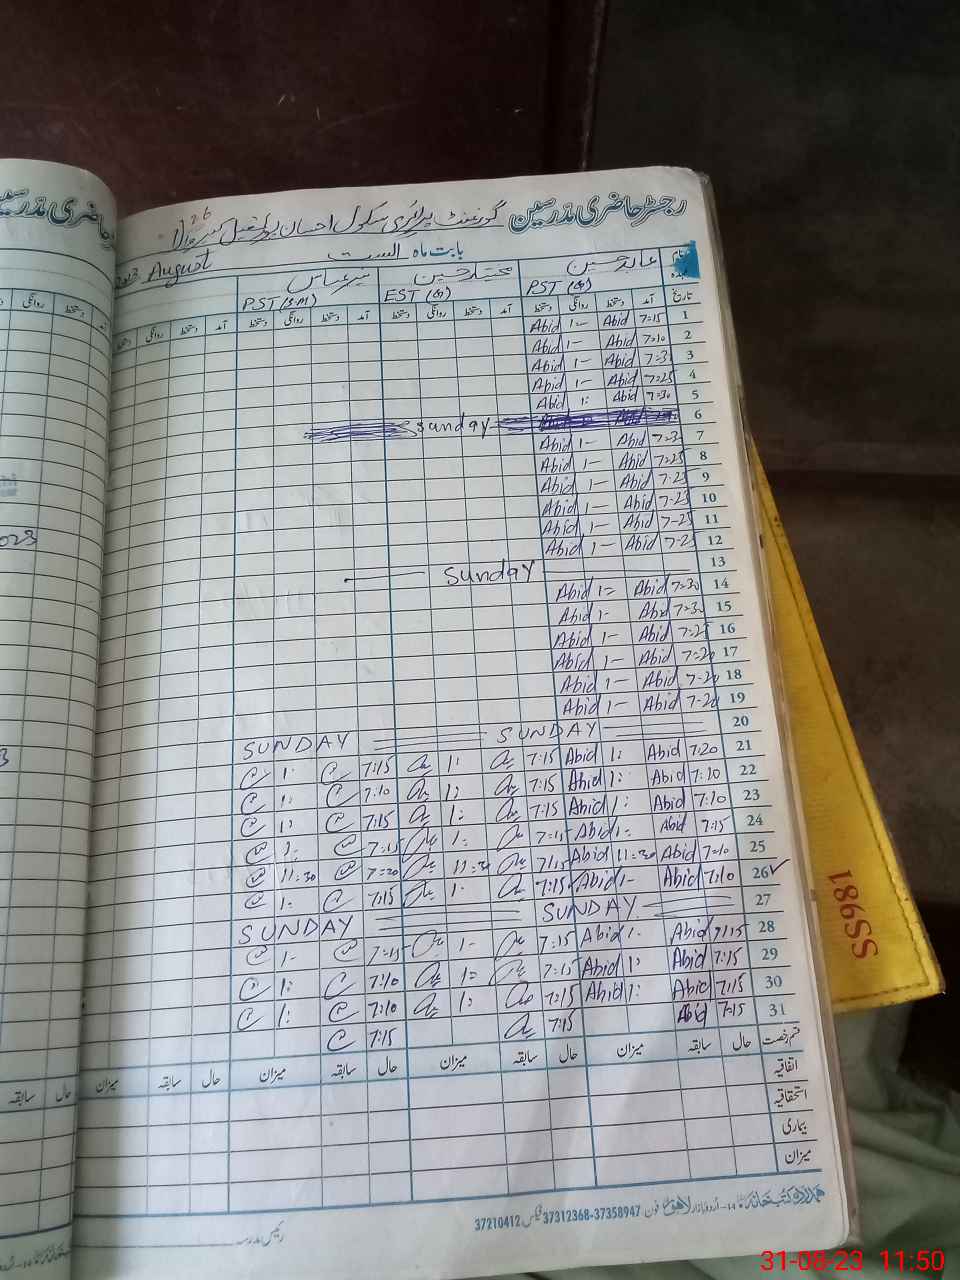 رجسٹر حاضری مدرسین گورنمنٹ پرائمری سکول احسان پور
26
بابت ماہ اگست August 2023
عابد حسین
PST (G) EST (G) PST (S.M)
تاریخ آمد دستخط روانگی دستخط آمد دستخط روانگی دستخط آمد دستخط روانگی دستخط آمد دستخط روانگی دستخط
1 7:15 Abid 1:- Abid
2 7:10 Abid 1- Abid
3 7:3 Abid 1- Abid
4 7-25 Abid 1- Abid
5 7:30 Abid 1: Abid
6 Sunday
7 7:3 Abid 1- Abid
8 7:25 Abid 1- Abid
9 7:25 Abid 1- Abid
10 7-25 Abid 1- Abid
11 7-25 Abid 1- Abid
12 7-25 Abid 1- Abid
13 Sunday
14 7=30 Abid 1= Abid
15 7=30 Abid 1- Abid
16 7-25 Abid 1- Abid
17 7-20 Abid 1- Abid
18 7-20 Abid 1- Abid
19 7-20 Abid 1- Abid
20 SUNDAY SUNDAY
21 7:20 Abid 1: Abid 7:15 1: 7:15 1:
22 7:10 Abid 1: Abid 7:15 1: 7:10 1:
23 7:10 Abid 1: Abid 7:15 1: 7:15 1:
24 7:15 Abid 1- Abid 7:15 1- 7:15 1-
25 7:10 Abid 11=30 Abid 7:15 11=30 7=20 11=30
26 7:10 Abid 1- Abid 7:15 1- 7:15 1:
27 SUNDAY SUNDAY
28 7:15 Abid 1: Abid 7:15 1- 7:15 1-
29 7:15 Abid 1: Abid 7:15 1= 7:10 1:
30 7:15 Abid 1: Abid 7:15 1: 7:10 1:
31 7:15 Abid 7:15 7:15
قسم رخصت حال سابقہ میزان حال سابقہ میزان حال سابقہ میزان حال سابقہ میزان
اتفاقیہ
استحقاقیہ
بیماری
میزان
ہمدرد کتب خانہ 14-اردو بازار لاہور فون 37312368-37358947 فیکس 37210412
رئیس مدرسہ
SS981
31-08-23 11:50